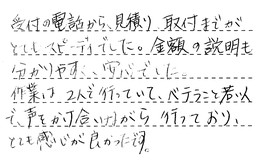 受付の電話から、見積り、取付までが
とてもスピーディでした。金額の説明も
分かりやすく、安心でした。
作業は、2人で行っていて、ベテランと若い人
で、声をかけ合いながら行っており、
とても感じが良かったです。